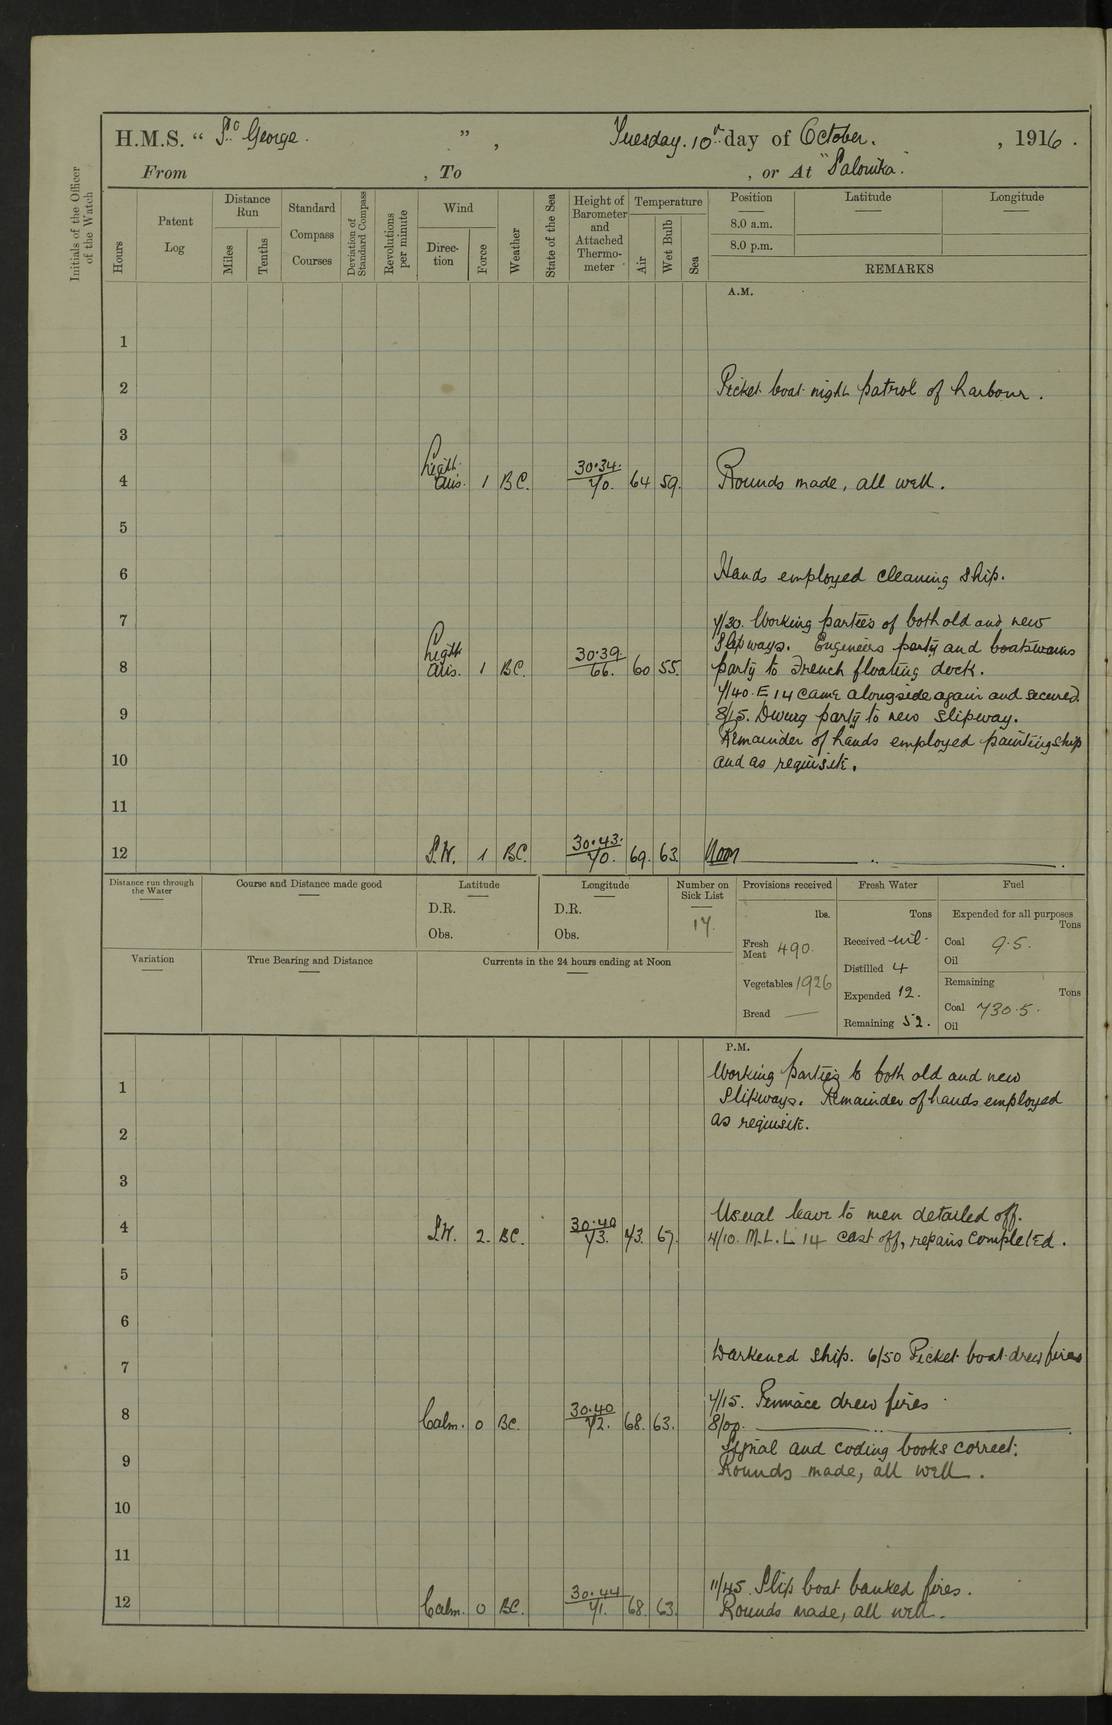 H.M.S. “ St George. ”, Tuesday. 10th day of October. , 1916.
From , To , or At "Salonika."
Initials of the Officer of the Watch
Hours
Patent Log
Distance Run
Miles
Tenths
Standard Compass Courses
Deviation of Standard Compass
Revolutions per minute
Wind
Direction
Force
Weather
State of the Sea
Height of Barometer and Attached Thermometer
Temperature
Air
Wet Bulb
Sea
Position Latitude Longitude
8.0 a.m.
8.0 p.m.
REMARKS
A.M.
1
2 Picket boat night patrol of harbour.
3
4 Light airs. 1 BC. 30.34. 70. 64 59. Rounds made, all well.
5
6 Hands employed cleaning ship.
7 7/30. Working parties of both old and new
Slipways. Engineers party and boatswains
8 Light airs. 1 BC. 30.39. 66. 60 55. party to French floating dock.
7/40. E 14 came alongside again and secured.
9 8/15. party to new slipway.
Remainder of hands employed painting ship
10 and as requisite.
11
12 S.W. 1 BC. 30.43. 70. 69. 63. Noon
Distance run through the Water
Course and Distance made good
Latitude
D.R.
Obs.
Longitude
D.R.
Obs.
Number on Sick List
17.
Provisions received
lbs.
Fresh Meat 490.
Vegetables 1926
Bread —
Fresh Water
Tons
Received nil.
Distilled 4
Expended 12.
Remaining 52.
Fuel
Expended for all purposes
Tons
Coal 9.5.
Oil
Remaining
Tons
Coal 730.5.
Oil
Variation
True Bearing and Distance
Currents in the 24 hours ending at Noon
P.M.
Working parties to both old and new
1 Slipways. Remainder of hands employed
as requisite.
2
3
Usual leave to men detailed off.
4 S.W. 2. BC. 30.40 73. 73. 67. 4/10. M.L. 14 cast off, repairs completed.
5
6
7 Darkened ship. 6/50 Picket boat drew fires
7/15. Pinnace drew fires
8 Calm. 0 BC. 30.40 72. 68. 63. 8/00.
Signal and coding books correct.
9 Rounds made, all well.
10
11
11/45. Slip boat banked fires.
12 Calm. 0 BC. 30.44 71. 68. 63. Rounds made, all well.